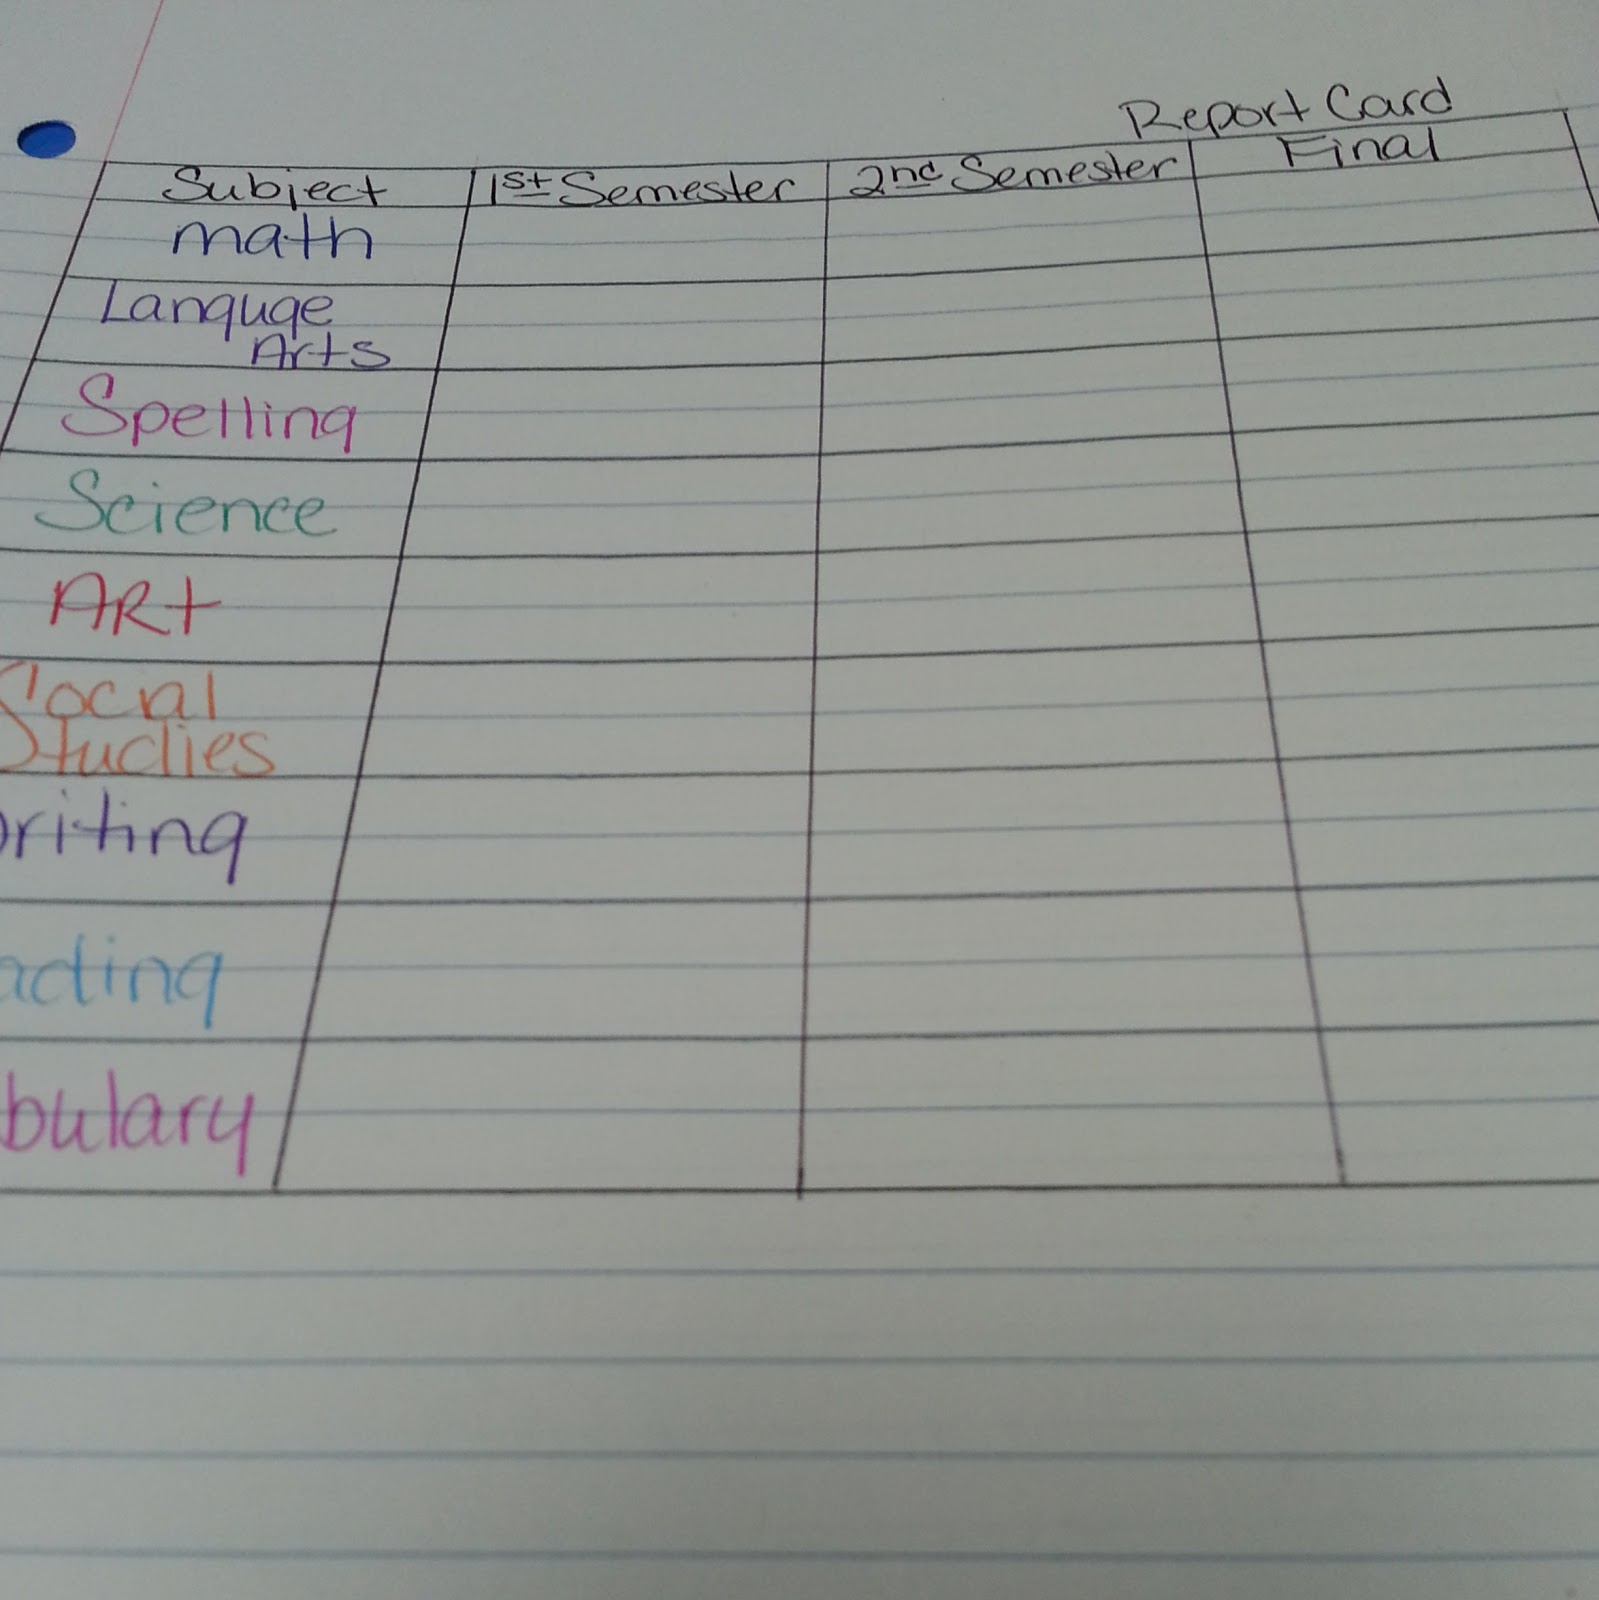 Report Card
Subject 1st Semester 2nd Semester Final
math
Languge
Arts
Spelling
Science
ARt
Social
Studies
riting
ading
bulary